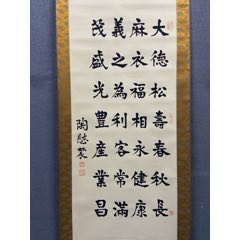 大德松壽春秋長
麻衣為福相永健康
義之福利客常滿
茂盛光豐產業昌
陶慇裳